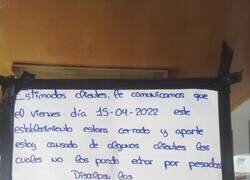 Estimados clientes, le comunicamos que
el viernes día 15-04-2022 este
establecimiento estara cerrado y aparte
estoy cansado de algunos clientes los
cuales no los puedo echar por pesados
Disculpen las